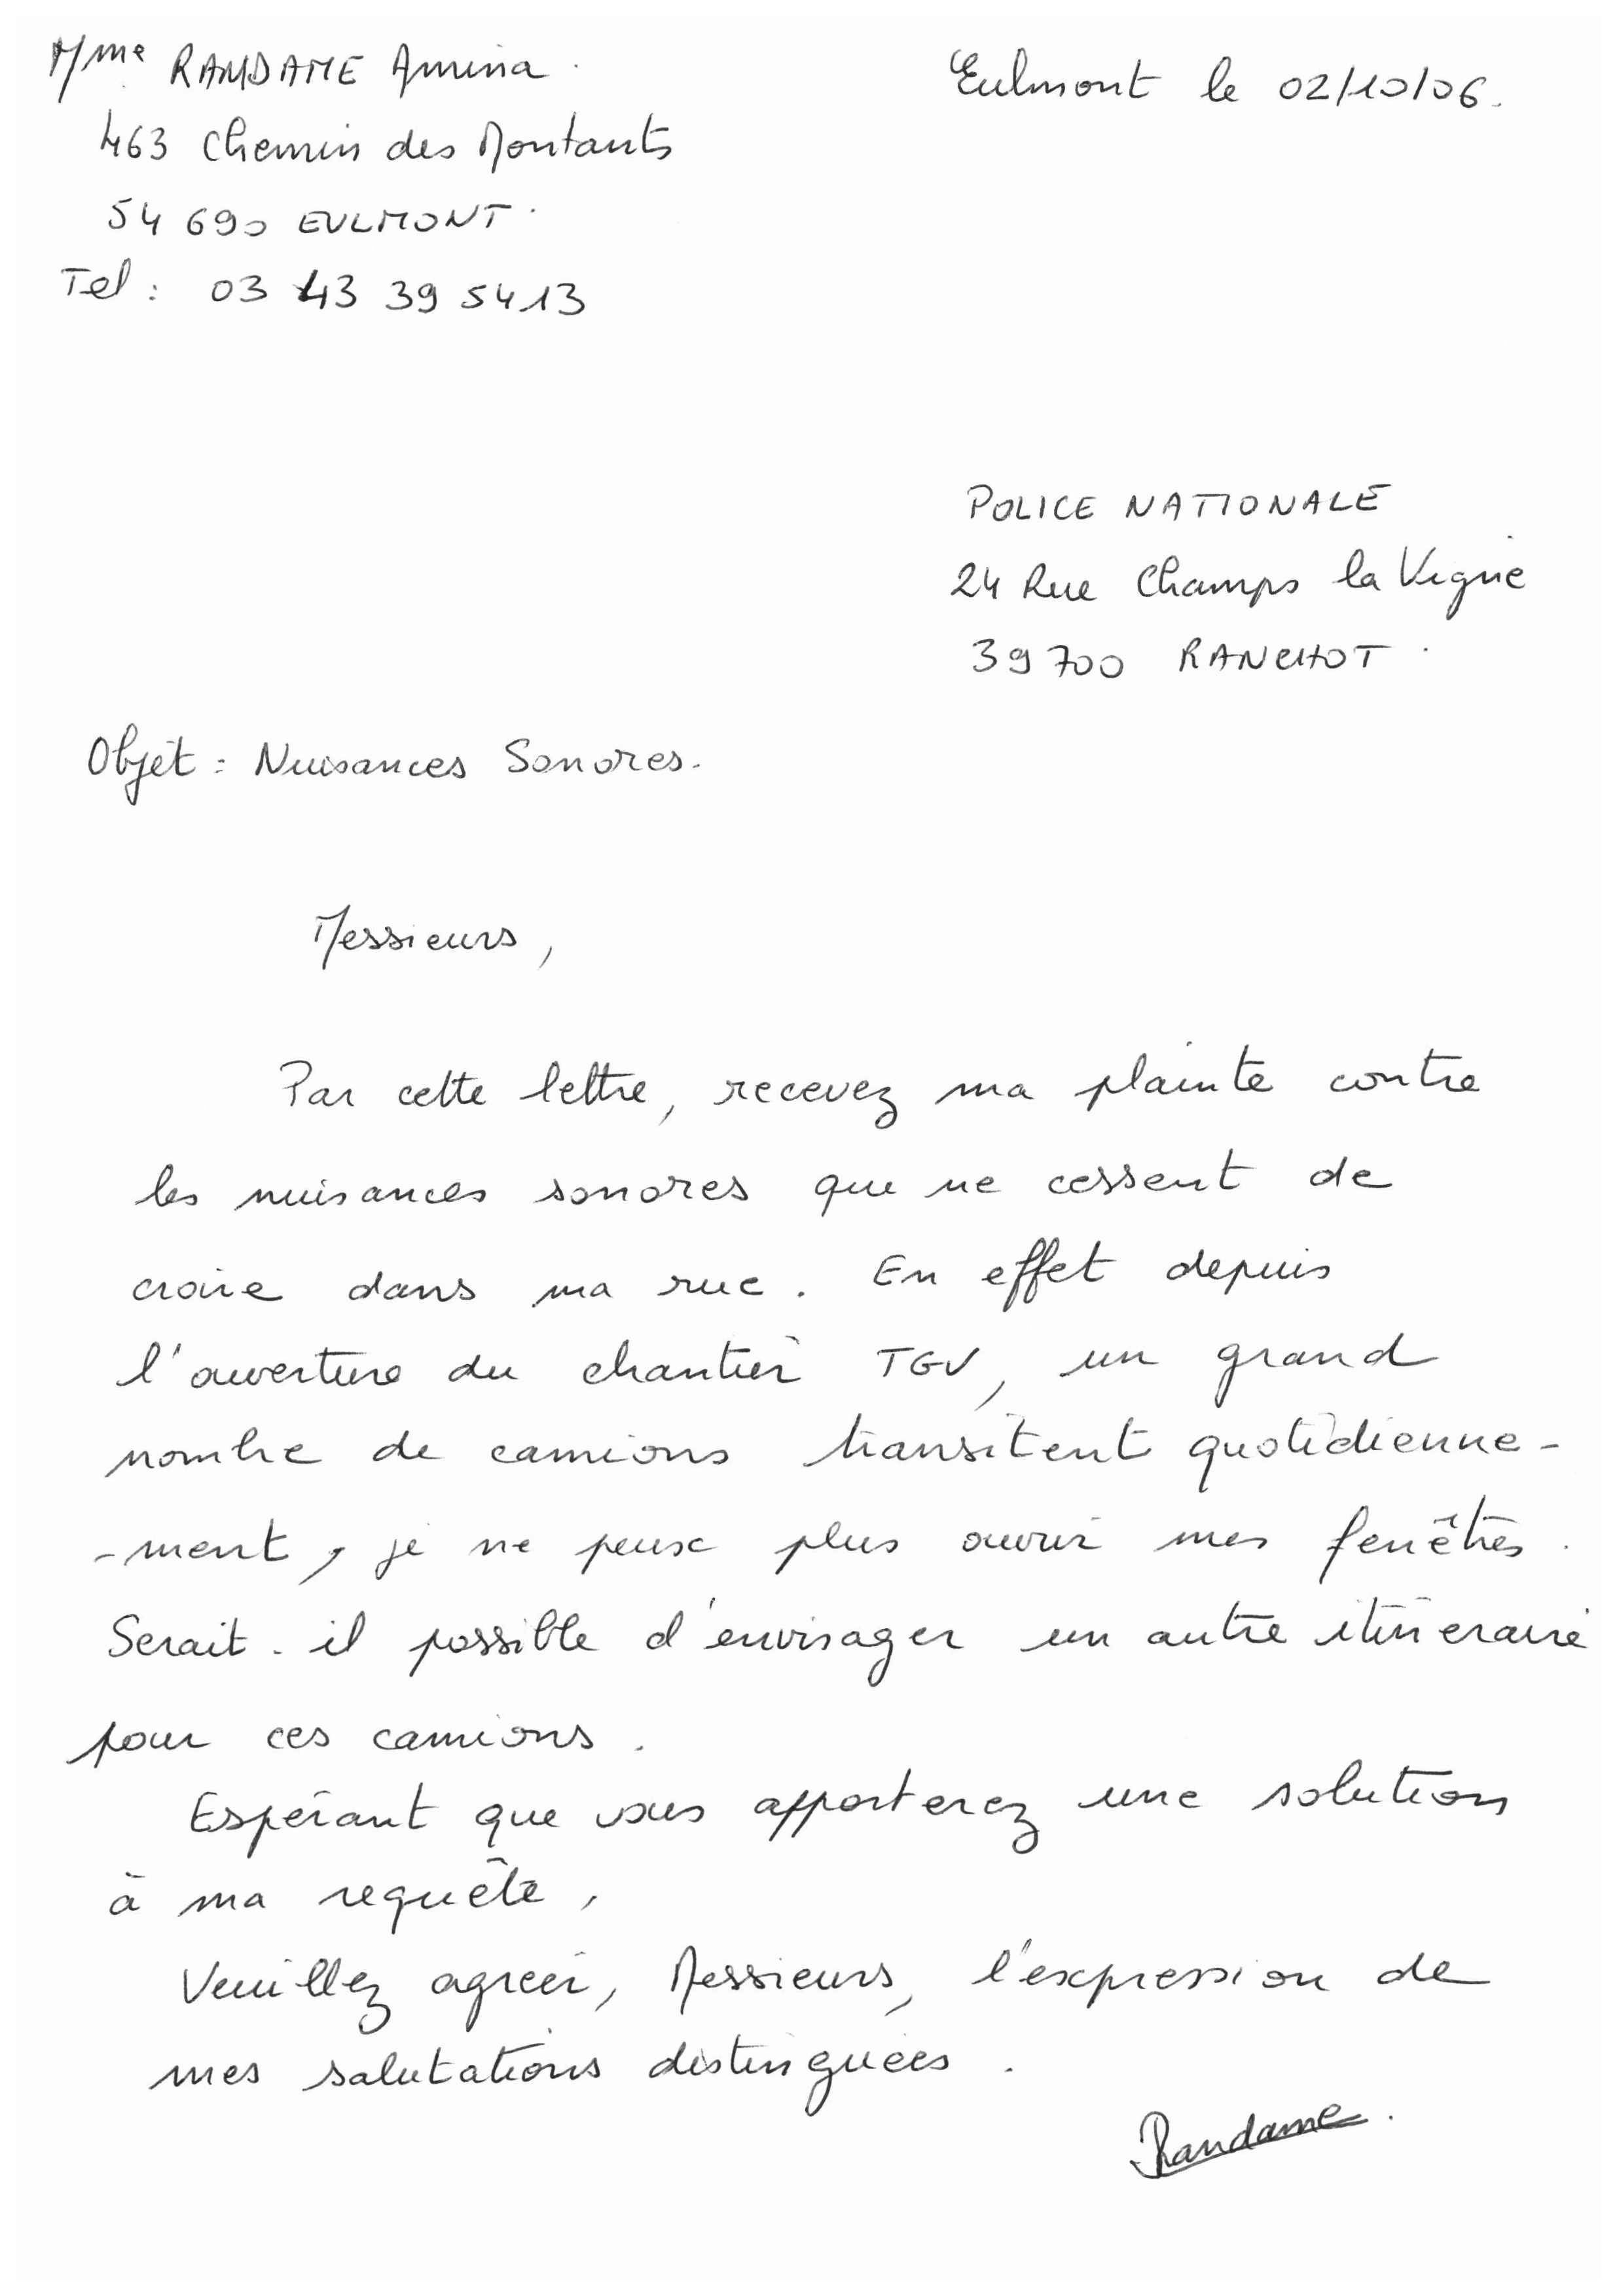 Mme RAMDAME Amina.
463 Chemin des Montants
54 690 EULMONT.
Tel : 03 43 39 54 13
Eulmont le 02/10/06.
POLICE NATIONALE
24 Rue Champs la Vigne
39 700 RANCHOT.
Objet : Nuisances Sonores.
Messieurs,
Par cette lettre, recevez ma plainte contre
les nuisances sonores que ne cessent de
croire dans ma rue. En effet depuis
l'ouverture du chantier TGV, un grand
nombre de camions transitent quotidienne-
-ment, je ne peux plus ouvrir mes fenêtres.
Serait-il possible d'envisager un autre itinéraire
pour ces camions.
Espérant que vous apporterez une solution
à ma requête,
Veuillez agréer, Messieurs, l'expression de
mes salutations distinguées.
Randame.